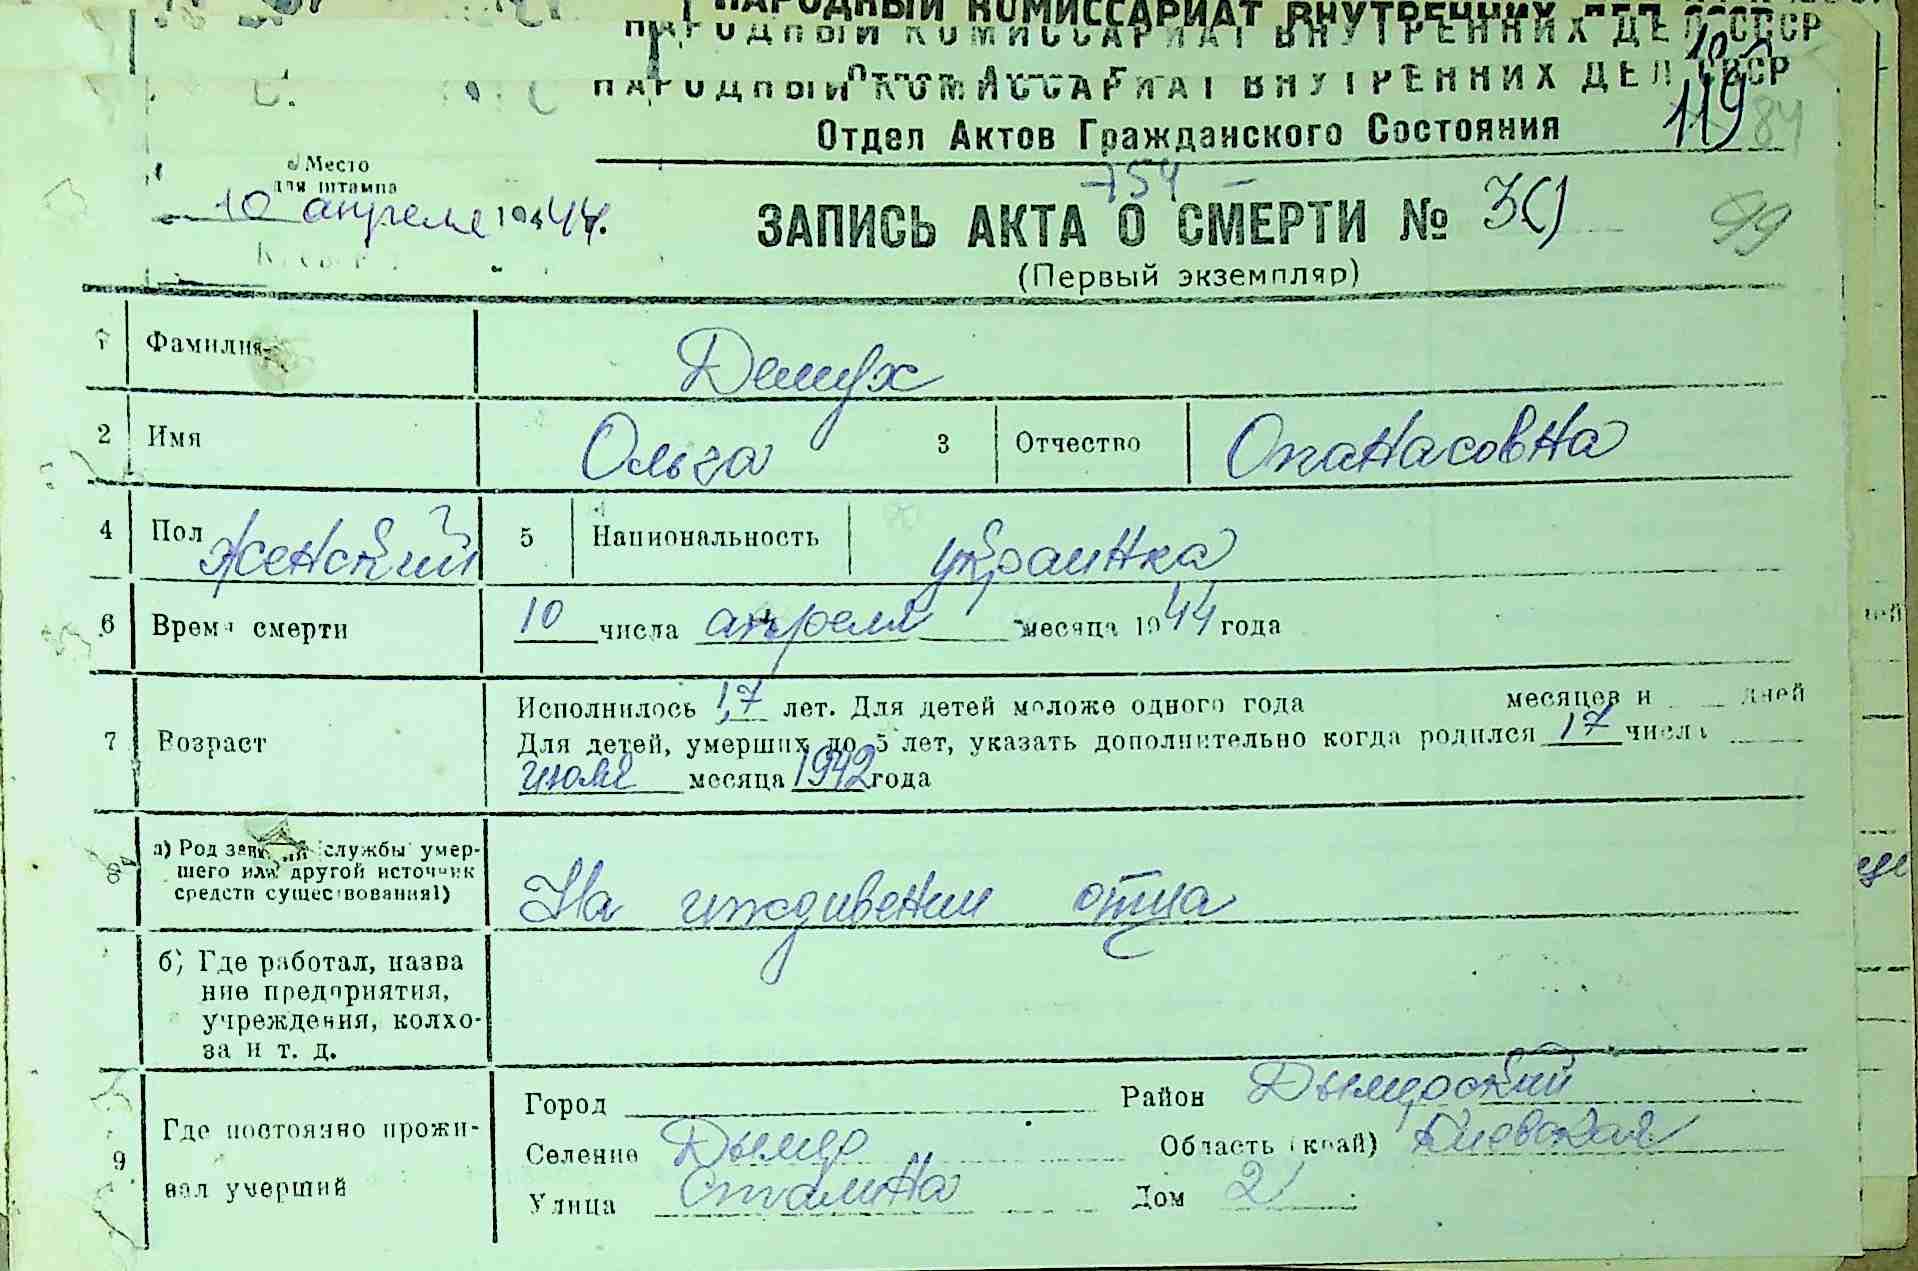 НАРОДНЫЙ КОМИССАРИАТ ВНУТРЕННИХ ДЕЛ СССР
НАРОДНЫЙ КОМИССАРИАТ ВНУТРЕННИХ ДЕЛ СССР
НАРОДНЫЙ КОМИССАРИАТ ВНУТРЕННИХ ДЕЛ СССР
119 84
Отдел Актов Гражданского Состояния
Место
для штампа
10 апреля 1944г.
754 -
ЗАПИСЬ АКТА О СМЕРТИ №
99
(Первый экземпляр)
1 Фамилия Демух
2 Имя Ольга 3 Отчество Опанасовна
4 Пол Женский 5 Национальность украинка
6 Время смерти 10 числа апреля месяца 1944 года
7 Возраст Исполнилось 1,7 лет. Для детей моложе одного года месяцев и дней
Для детей, умерших до 5 лет, указать дополнительно когда родился 17 числа
июля месяца 1942 года
8 а) Род занятий службы умер-
шего или другой источник
средств существования1) На иждивении отца
б) Где работал, назва
ние предприятия,
учреждения, колхо-
за и т. д.
9 Где постоянно прожи-
вал умерший
Город Район Дымерский
Селение Дымер Область (край) Киевская
Улица Сталина Дом 2